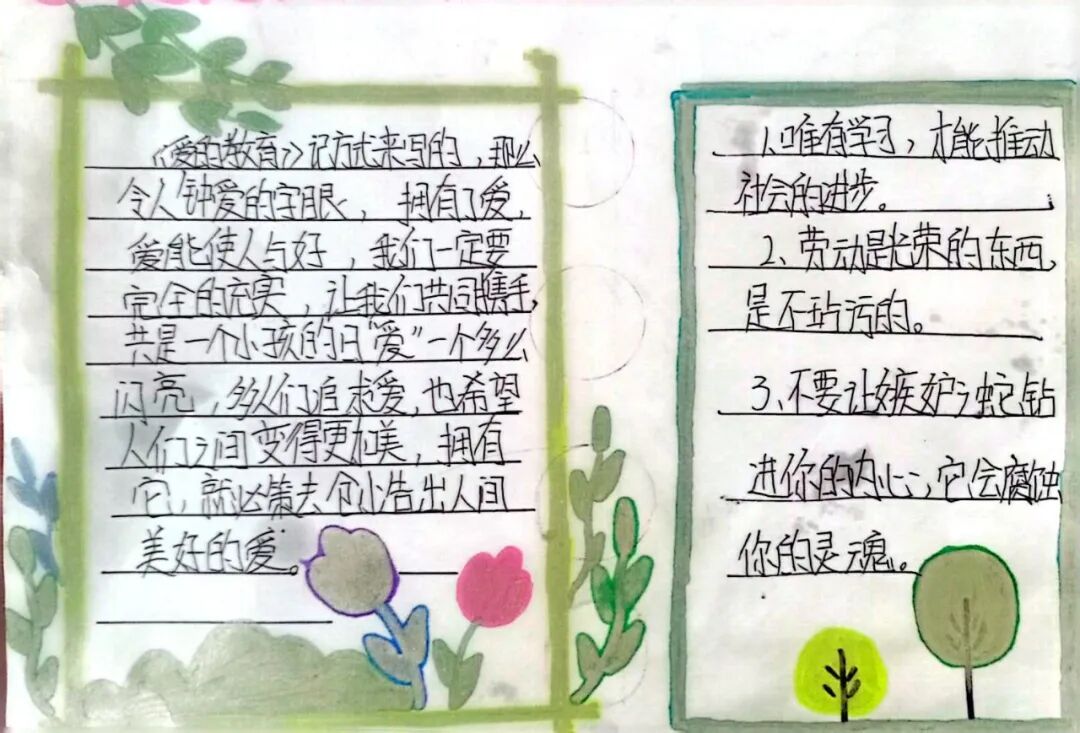 《爱的教育》记方式来写的，那么
令人钟爱的字眼，拥有了爱，
爱能使人与好，我们一定要
完全的充实，让我们共同携手，
共是一个小孩的日“爱”一个多么
闪亮，多人们追求爱，也希望
人们之间变得更加美，拥有
它，就必策去创告出人间
美好的爱。
1.唯有学习，才能推动
社会的进步。
2、劳动是光荣的东西，
是不玷污的。
3、不要让嫉妒之蛇钻
进你的内心，它会腐蚀
你的灵魂。